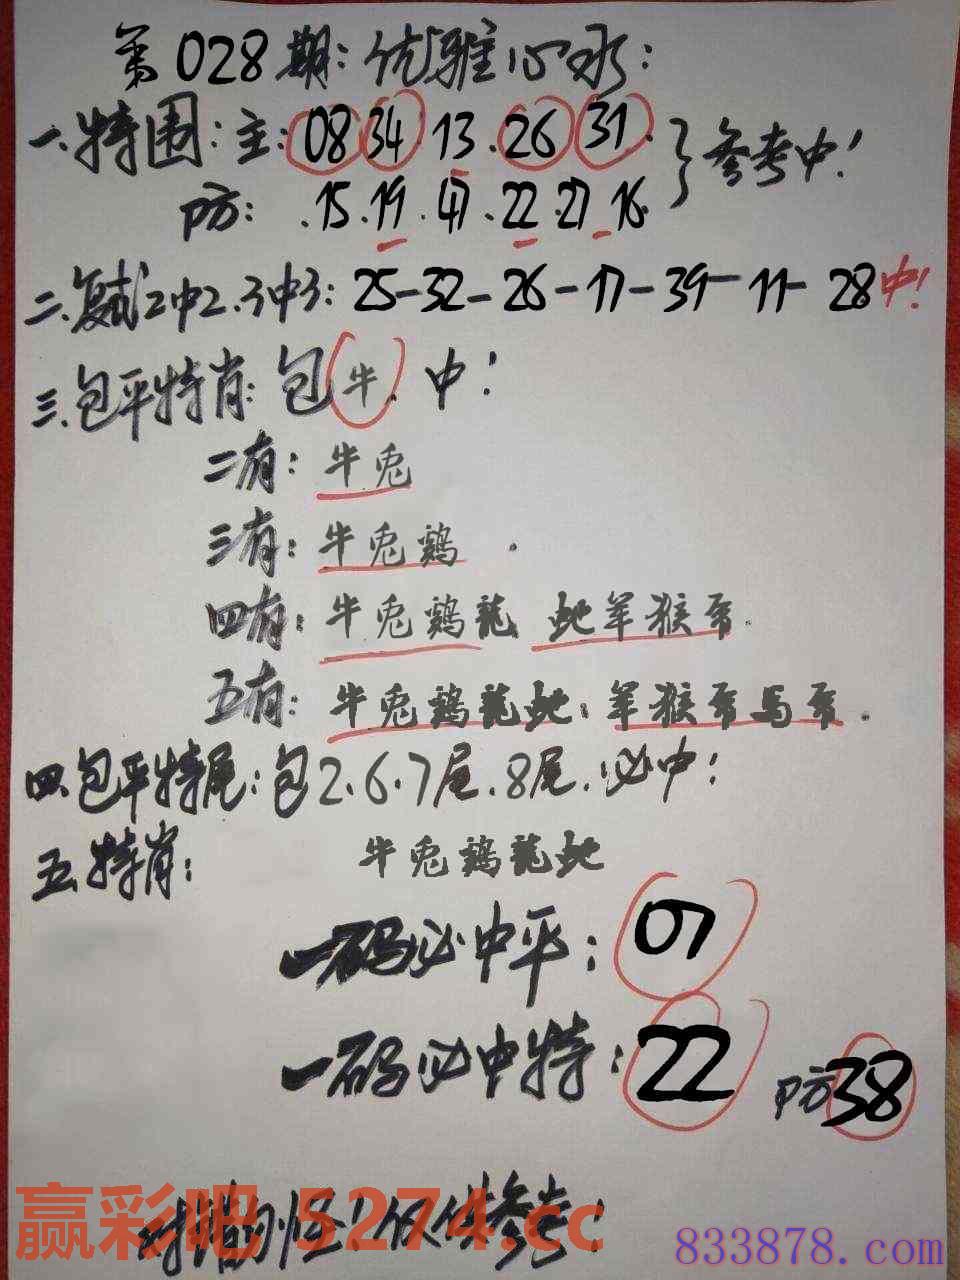 第028期:优雅心水:
一.特围:主:08 34.13.26 31.}参考中!
防:.15.19.47.22.27 16.
二.复式2中2.3中3:25-32-26-17-39-11-28中!
三.包平特肖:包牛.中!
二有:牛兎
三有:牛兎鶏.
四有:牛兎鶏龍 虵羊猴
五有:牛兎鶏龍虵.羊猴 馬
四.包平特尾:包2.6.7尾.8尾.必中!
五.特肖:牛兎鶏龍虵
一码必中平:07
一码必中特:22 防38
对错勿怪!仅供参考!
赢彩吧 5274.cc
833878.com